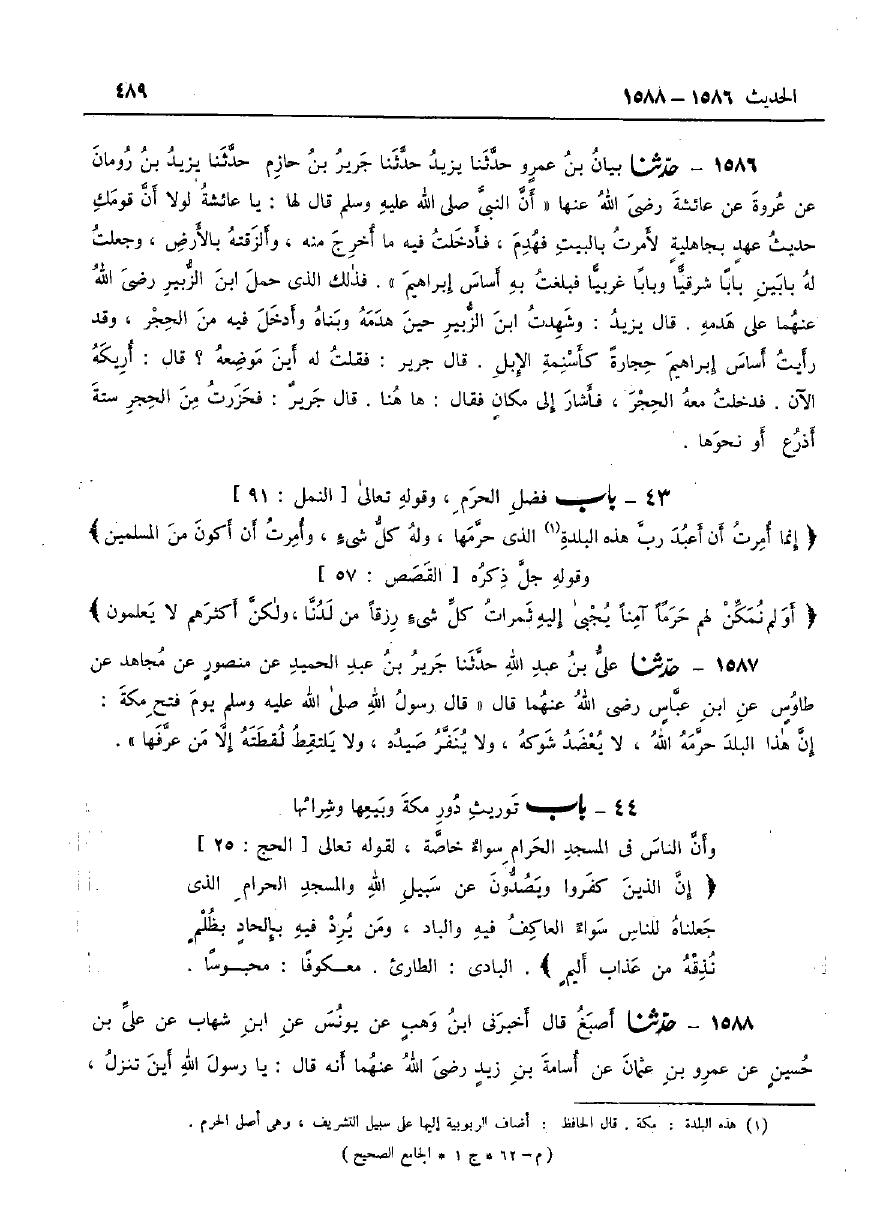 الحديث ١٥٨٦ – ١٥٨٨
٤٨٩
١٥٨٦ – حدّثنا بيانُ بنُ عمرٍو حدَّثَنا يزيدُ حدَّثَنا جَريرُ بنُ حازمٍ حدَّثَنا يزيدُ بنُ رُومانَ
عن عُروةَ عن عائشةَ رضىَ اللهُ عنها « أَنَّ النبىَّ صلى الله عليهِ وسلم قال لها : يا عائشةُ لولا أنَّ قومَكِ
حديثُ عهدٍ بجاهليةٍ لأَمرتُ بالبيتِ فهُدِمَ ، فأَدخَلتُ فيه ما أُخرِجَ منه ، وأَلزَقتهُ بالأَرضِ ، وجعلتُ
لهُ بابَينِ بابًا شرقيًّا وبابًا غربيًّا فبلغتُ بهِ أساسَ إبراهيمَ » . فذٰلك الذى حملَ ابنَ الزُّبيرِ رضىَ اللهُ
عنهُما على هَدمهِ . قال يزيدُ : وشَهِدتُ ابنَ الزُّبيرِ حينَ هدَمَهُ وبَناهُ وأدخَلَ فيه منَ الحِجْر ، وقد
رأيتُ أساسَ إبراهيمَ حِجارةً كأَسْنِمةِ الإبلِ . قال جرير : فقلتُ له أينَ مَوضِعهُ ؟ قال : أُريكَهُ
الآن . فدخلتُ معهُ الحِجْرَ ، فأَشارَ إلى مكانٍ فقال : ها هُنا . قال جَريرٌ : فحَزَرتُ مِنَ الحِجرِ ستةَ
أَذرُعٍ أَو نحوَها .
٤٣ – بـاب فضلِ الحرَمِ ، وقولهِ تعالىٰ [ النمل : ٩١ ]
﴿ إنما أُمِرتُ أن أَعبُدَ ربَّ هذه البلدةِ(١) الذى حرَّمَها ، ولهُ كلُّ شىءٍ ، وأُمِرتُ أن أكونَ منَ المسلمين ﴾
وقولهِ جلَّ ذِكرُه [ القَصَص : ٥٧ ]
﴿ أَوَلم نُمكِّنْ لهم حَرَمًا آمِناً يُجْبىٰ إليهِ ثَمراتُ كلِّ شىءٍ رِزقاً من لَدُنَّا ، ولكنَّ أكثرَهم لا يَعلمون ﴾
١٥٨٧ – حدّثنا علىُّ بنُ عبدِ اللهِ حدَّثَنا جَريرُ بنُ عبدِ الحميدِ عن منصورٍ عن مُجاهد عن
طاوُسٍ عنِ ابنِ عبَّاسٍ رضى اللهُ عنهُما قال « قال رسولُ اللهِ صلىٰ الله عليه وسلم يومَ فتح مكةَ :
إنَّ هٰذا البلدَ حرَّمَهُ اللهُ ، لا يُعْضَدُ شَوكهُ ، ولا يُنَفَّرُ صَيدُه ، ولا يَلتقِطُ لُقطَتَهُ إلّا مَن عرَّفَها » .
٤٤ – بـاب تَوريثِ دُورِ مكةَ وبَيعِها وشِرائها
وأنَّ الناسَ فى المسجدِ الحَرامِ سواءٌ خاصَّة ، لقوله تعالى [ الحج : ٢٥ ]
﴿ إنَّ الذينَ كفَروا ويَصُدُّونَ عن سَبيلِ اللهِ والمسجدِ الحرامِ الذى
جَعلناهُ للناسِ سَواءً العاكِفُ فيهِ والباد ، ومَن يُرِدْ فيهِ بإلحادٍ بظُلْمٍ
نُذِقْهُ من عَذابٍ أليمٍ ﴾ . البادى : الطارئ . معـكوفًا : محبـوسًا .
١٥٨٨ – حدّثنا أصبَغُ قال أخبرَنى ابنُ وَهبٍ عن يونُسَ عنِ ابنِ شهاب عن علىِّ بن
حُسينٍ عن عمرِو بنِ عثمانَ عن أُسامةَ بنِ زيدٍ رضىَ اللهُ عنهُما أنه قال : يا رسولَ اللهِ أينَ تنزلُ ،
(١) هذه البلدة : مكة . قال الحافظ : أضاف الربوبية إليها على سبيل التشريف ، وهى أصل الحرم .
( م – ٦٢ * ج ١ * الجامع الصحيح )